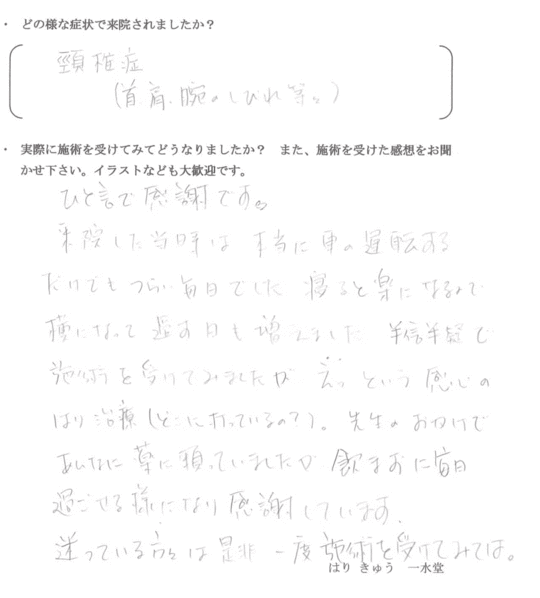 ・ どの様な症状で来院されましたか？
頸椎症
(首、肩、腕のしびれ等々)
・ 実際に施術を受けてみてどうなりましたか？　また、施術を受けた感想をお聞
かせ下さい。イラストなども大歓迎です。
ひと言で感謝です。
来院した当時は 本当に車の運転する
だけでもつらい毎日でした 寝ると楽になるので
横になって過す日も増えました 半信半疑で
施術を受けてみましたが えっ という感じの
はり治療(どこに打っているの？)。先生のおかげで
あんなに薬に頼っていましたが 飲まずに毎日
過ごせる様になり感謝しています。
迷っている方々は是非 一度施術を受けてみては。
はり きゅう　一水堂